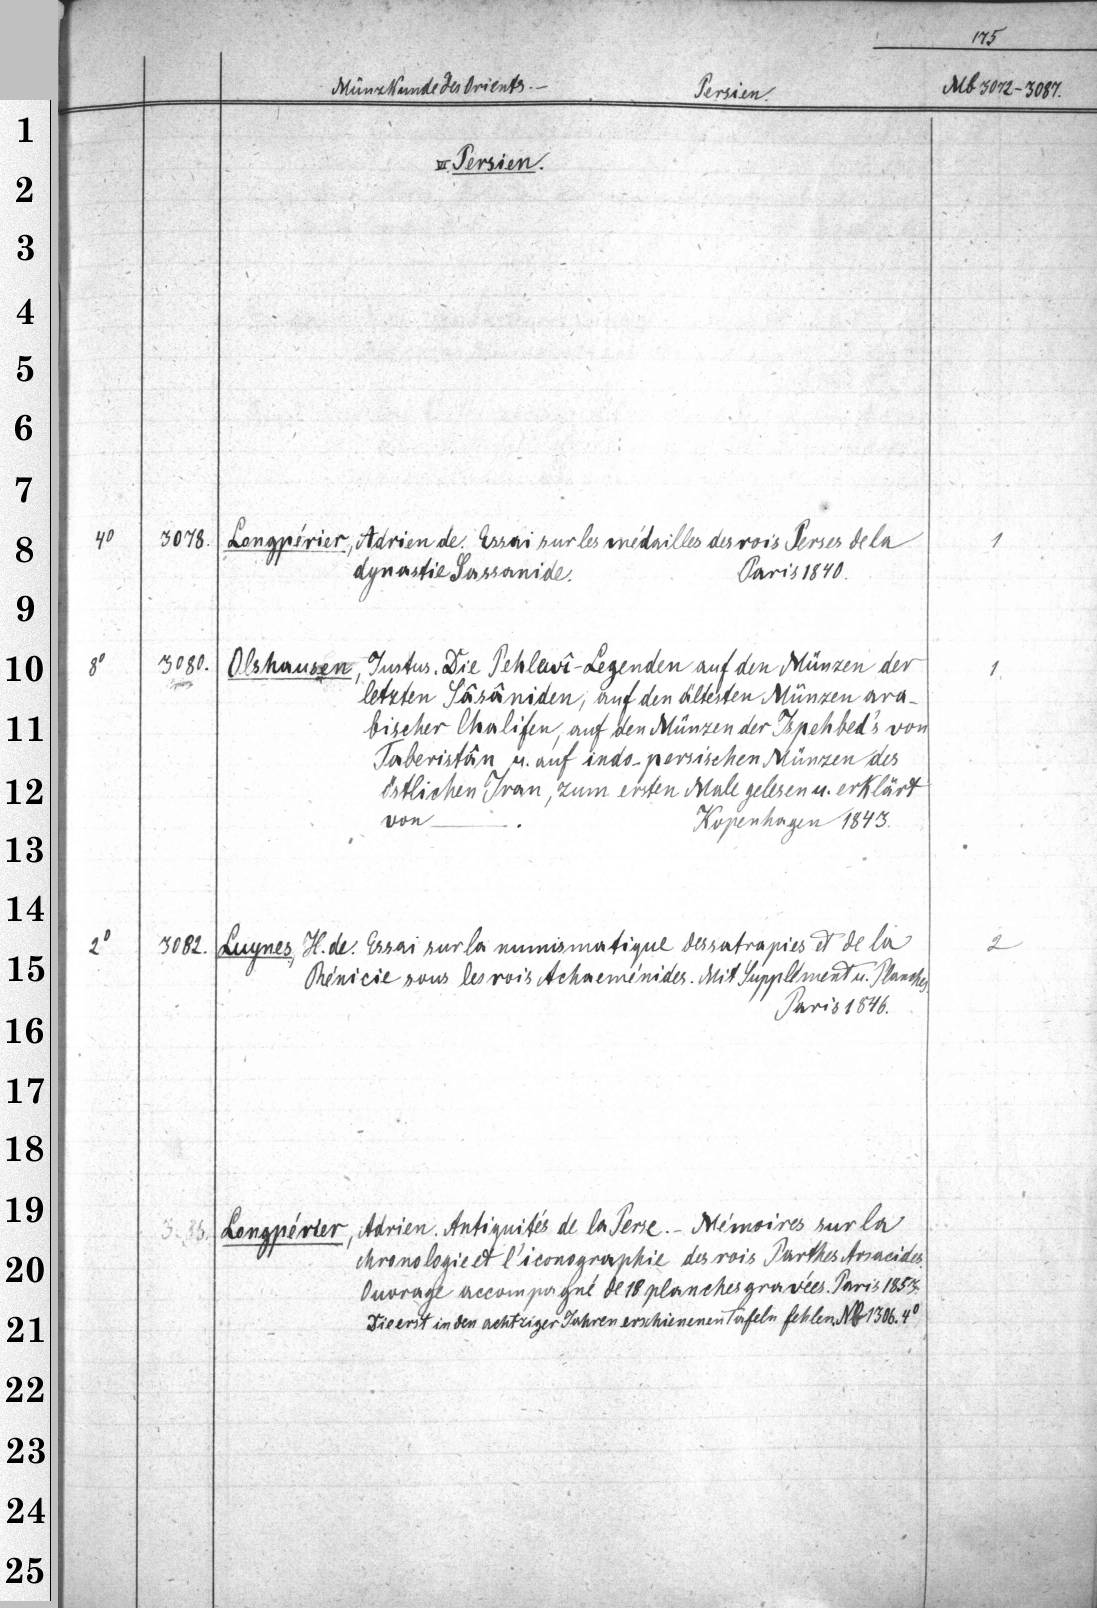 175
Münzkunde des Orients. — Persien. Mb 3072-3087.
1
VI Persien.
2
3
4
5
6
7
8
4° 3078. Longpérier, Adrien de. Essai sur les médailles des rois Perses de la 1
dynastie Sassanide. Paris 1840.
9
10
8° 3080. Olshausen, Justus. Die Pehlewî-Legenden auf den Münzen der 1.
letzten Sâsâniden, auf den ältesten Münzen ara-
11
bischer Chalifen, auf den Münzen der Ispehbed's von
Taberistân u. auf indo-persischen Münzen des
12
östlichen Iran, zum ersten Male gelesen u. erklärt
von ——. Kopenhagen 1843.
13
14
2° 3082. Luynes, H. de. Essai sur la numismatique des satrapies et de la 2
15
Phénicie sous les rois Achaeménides. Mit Supplément u. Planches.
Paris 1846.
16
17
18
19
Longpérier, Adrien. Antiquités de la Perse. — Mémoires sur la
20
chronologie et l'iconographie des rois Parthes Arsacides.
Ouvrage accompagné de 18 planches gravées. Paris 1853.
21
Die erst in den achtziger Jahren erschienenen Tafeln fehlen. Nb 1306. 4°
22
23
24
25